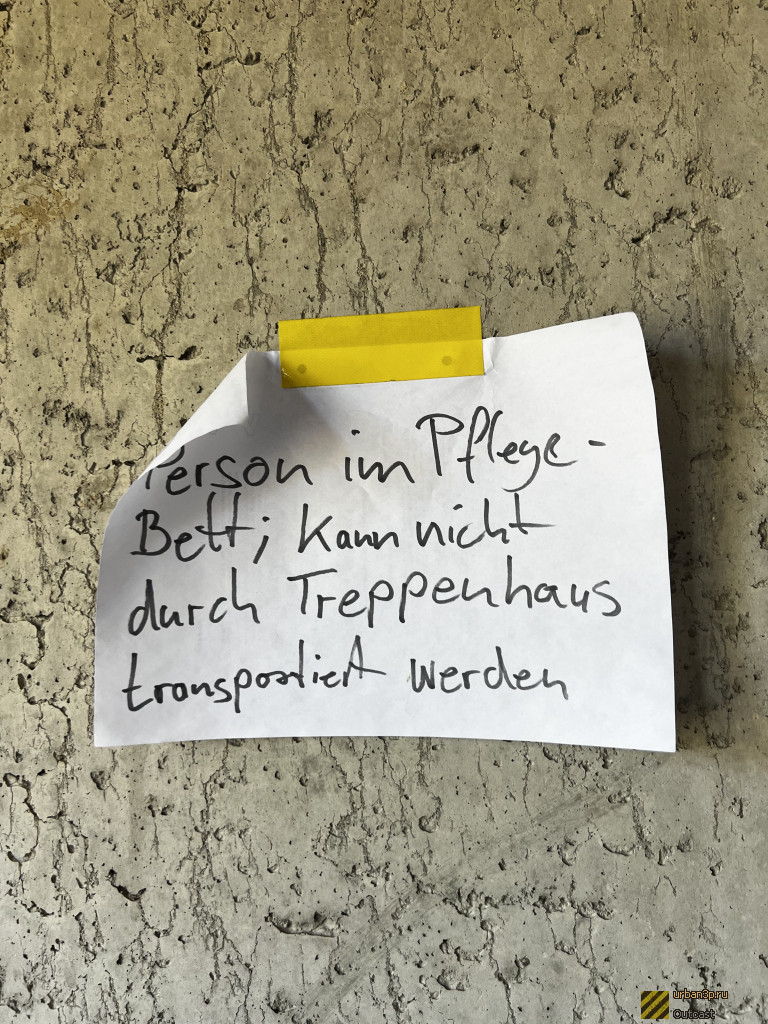 Person im Pflege-
Bett; kann nicht
durch Treppenhaus
transportiert werden
urban3p.ru
Outcast